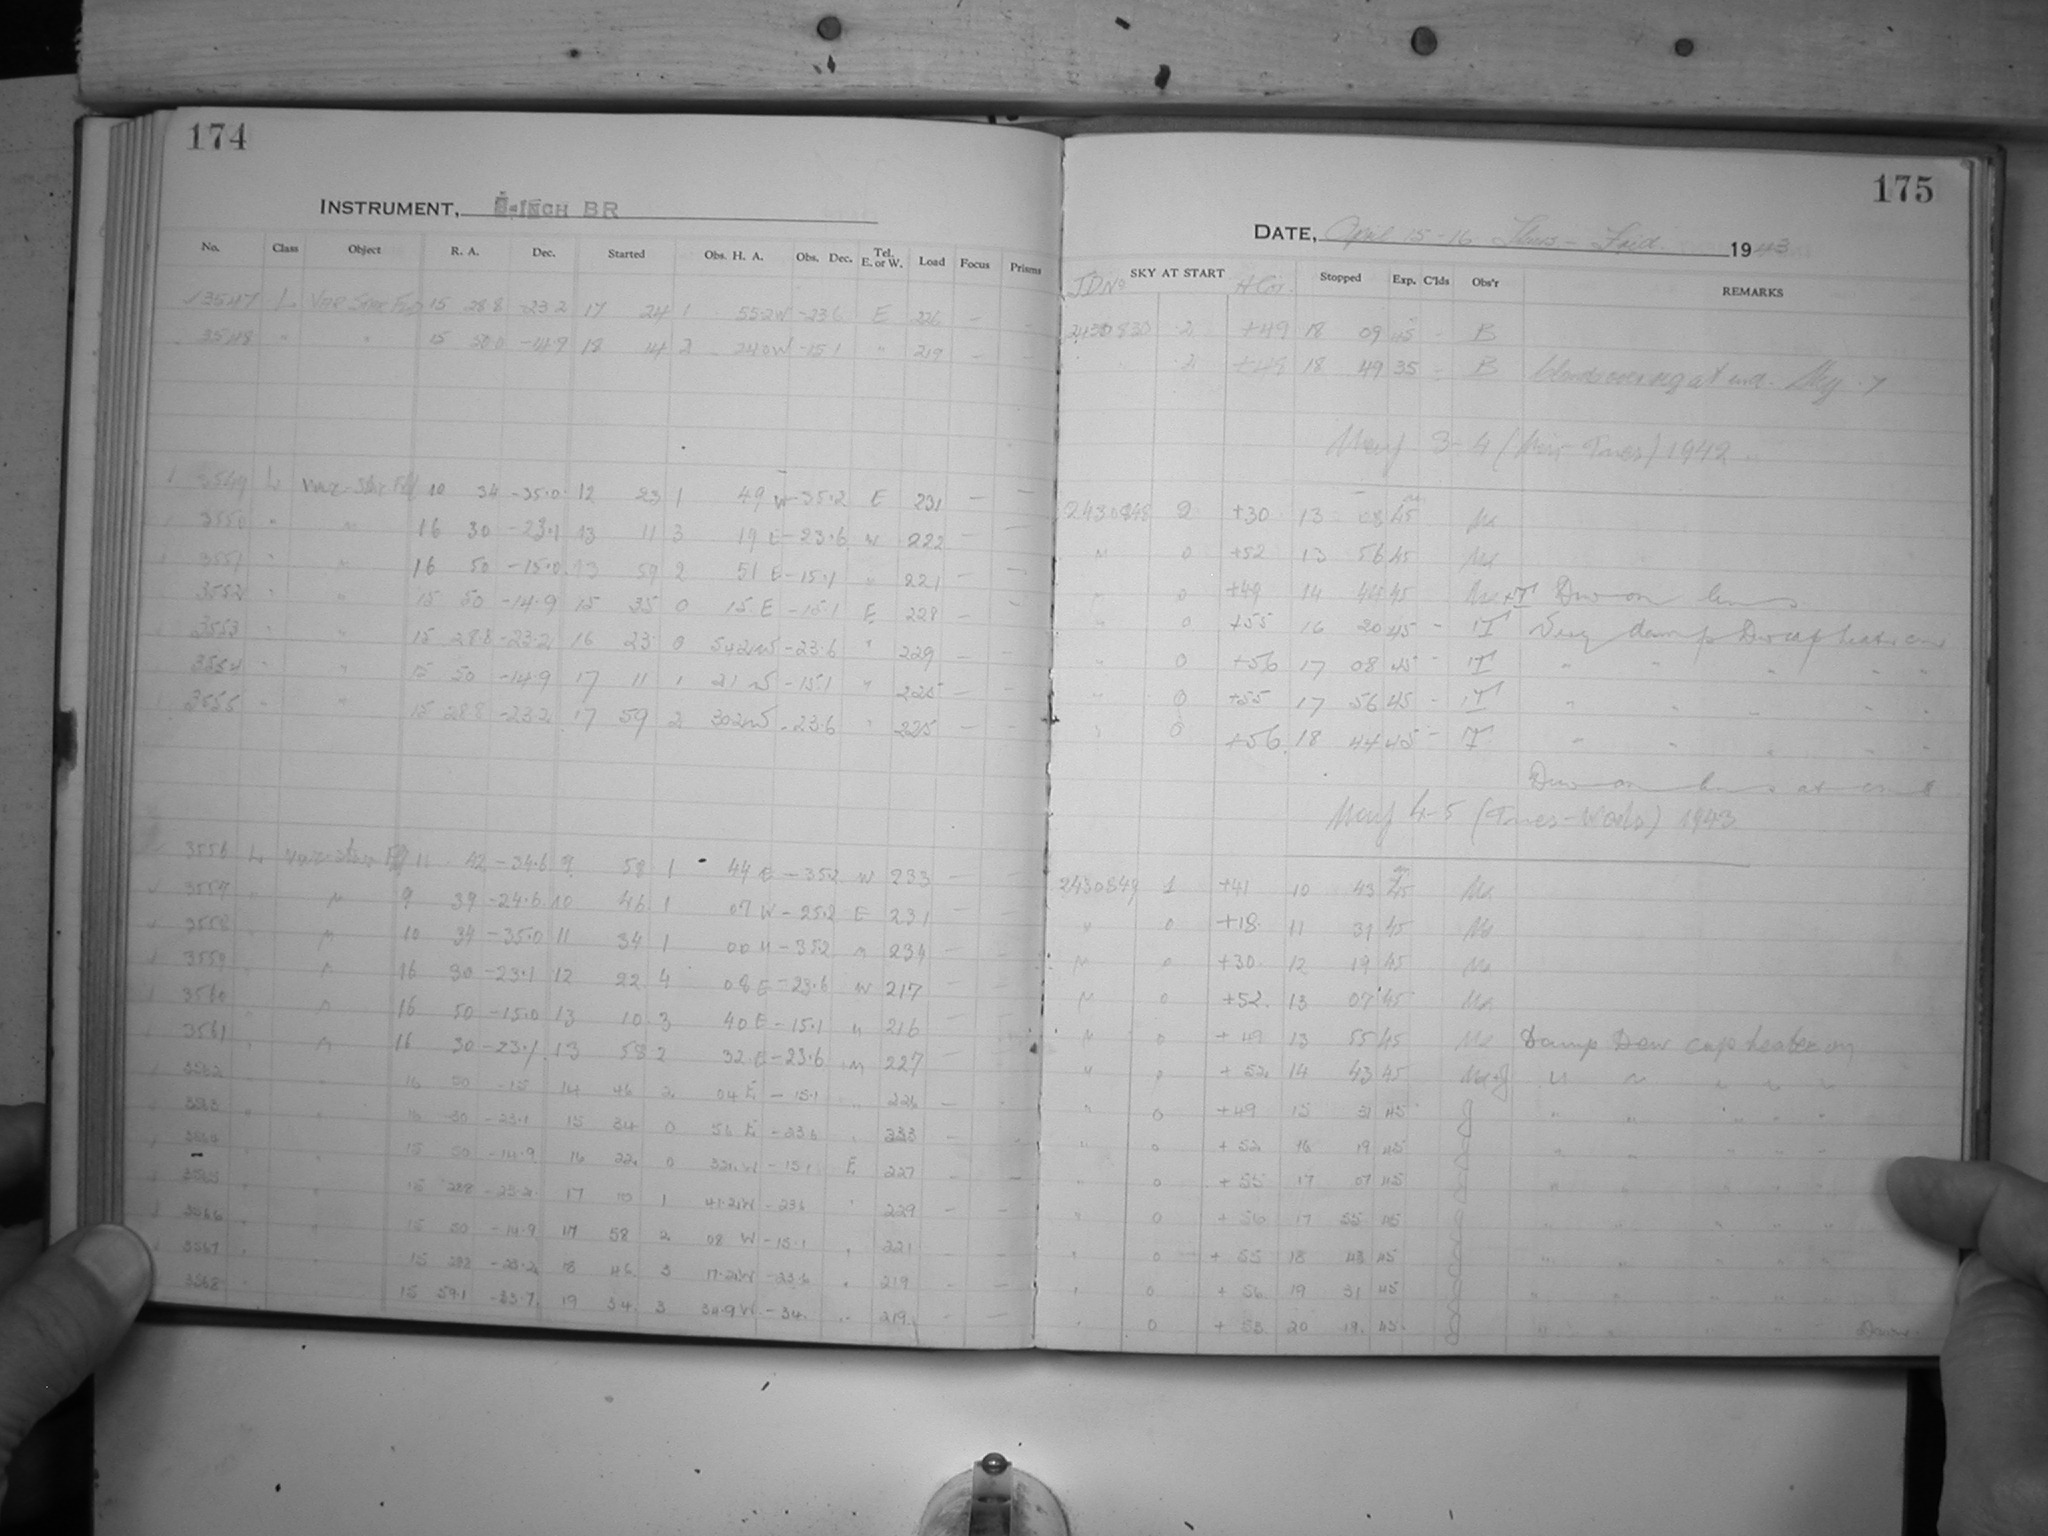 174
INSTRUMENT, 8-INCH BR
No. Class Object R. A. Dec. Started Obs. H. A. Obs. Dec. Tel. E. or W. Load Focus Prisms
3547 L Var Star Fld 15 28.8 -23.2 17 24 1 55.2W -23.6 E 226 — -
3548 " " 15 50.0 -14.9 18 14 2 24.0W -15.1 " 219 —
3549 L Var-Star Fld 10 34 -35.0 12 23 1 49 W -35.2 E 231 — —
3550 " " 16 30 -23.1 13 11 3 19 E -23.6 W 222 —
3551 " " 16 50 -15.0 13 59 2 51 E -15.1 " 221 — —
3552 " " 15 50 -14.9 15 35 0 15 E -15.1 E 228 —
3553 " " 15 28.8 -23.2 16 23 0 54.2W -23.6 " 229 — —
3554 " " 15 50 -14.9 17 11 1 21 W -15.1 " 225 — —
3555 " " 15 28.8 -23.2 17 59 2 30.2W -23.6 " 225 — —
3556 L Var-Star Fld 11 42 -34.6 9 58 1 44 E -35.2 W 233 — —
3557 " " 9 39 -24.6 10 46 1 07 W -25.2 E 231 — —
3558 " 10 34 -35.0 11 34 1 00 W -35.2 " 234 — —
3559 " " 16 30 -23.1 12 22 4 08 E -23.6 W 217 — —
3560 " " 16 50 -15.0 13 10 3 40 E -15.1 " 216 — —
3561 " " 16 30 -23.1 13 58 2 32 E -23.6 " 227 —
3562 " " 16 50 -15 14 46 2 04 E -15.1 " 226 — -
3563 " " 16 30 -23.1 15 34 0 56 E -23.6 " 233 —
3564 " " 15 50 -14.9 16 22 0 32 W -15.1 E 227 — —
3565 " " 15 28.8 -23.2 17 10 1 41.2W -23.6 " 229 — —
3566 " " 15 50 -14.9 17 58 2 08 W -15.1 " 221 — —
3567 " " 15 28.8 -23.2 18 46 3 17.2W -23.6 " 219 — —
3568 " 15 59.1 -33.7 19 34 3 34.9W -34. " 219 - —
175
DATE, April 15-16 Thurs - Frid. 1943
JDNo SKY AT START Stopped Exp. C'lds Obs'r REMARKS
2430830 2 +49 18 09 45 - B
2 +48 18 49 35 - B Clouds covering at end.
May 3-4 (Mon-Tues) 1942
2430848 2 +30 13 08 45 Ma
" 0 +52 13 56 45 Ma
" 0 +49 14 44 45 Ma+T Dew on lens
" 0 +55 16 20 45 - T Very damp Dew cap heater on
" 0 +56 17 08 45 - T " " " " "
" 0 +55 17 56 45 - T " " " " "
" 0 +56 18 44 45 - T " " " " "
Dew on lens at end
May 4-5 (Tues-Weds) 1943
2430849 1 +41 10 43 45 Ma
" 0 +18 11 31 45 Ma
" 0 +30 12 19 45 Ma
" 0 +52 13 07 45 Ma
" 0 +49 13 55 45 Ma Damp Dew cap heater on
" 0 +52 14 43 45 Ma+J " " " " "
" 0 +49 15 31 45 J " " " " "
" 0 +52 16 19 45 J " " " " "
" 0 +55 17 07 45 J " " " " "
" 0 +56 17 55 45 J " " " " "
" 0 +55 18 43 45 J " " " " "
" 0 +56 19 31 45 J " " " " "
" 0 +53 20 19 45 J " " " " " Dawn